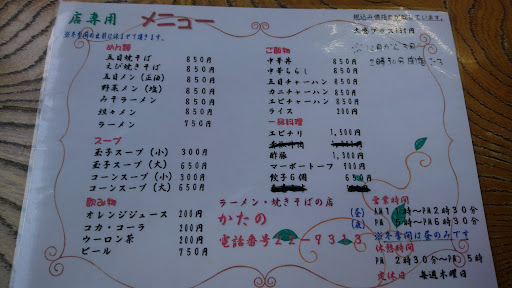 店専用 メニュー
税込み価格
めん類
五目焼そば 850円
えび焼きそば 850円
五目メン (正油) 850円
野菜メン (塩) 850円
みそラーメン 850円
坦々メン 850円
ラーメン 750円
スープ
玉子スープ (小) 300円
玉子スープ (大) 650円
コーンスープ (小) 300円
コーンスープ (大) 650円
飲み物
オレンジジュース 200円
コカ・コーラ 200円
ウーロン茶 200円
ビール 750円
ご飯物
中華丼 850円
中華ちらし 850円
五目チャーハン 850円
カニチャーハン 850円
エビチャーハン 850円
ライス 200円
一品料理
エビチリ 1,500円
酢豚 1,300円
マーボートーフ 700円
餃子6個 650円
ラーメン・焼きそばの店
かたの
電話番号22-9313
営業時間
(昼) AM11時~PM2時30分
(夜) PM5時~PM6時30分
※冬季間は昼のみです
休憩時間
PM2時30分~PM5時
定休日 毎週木曜日